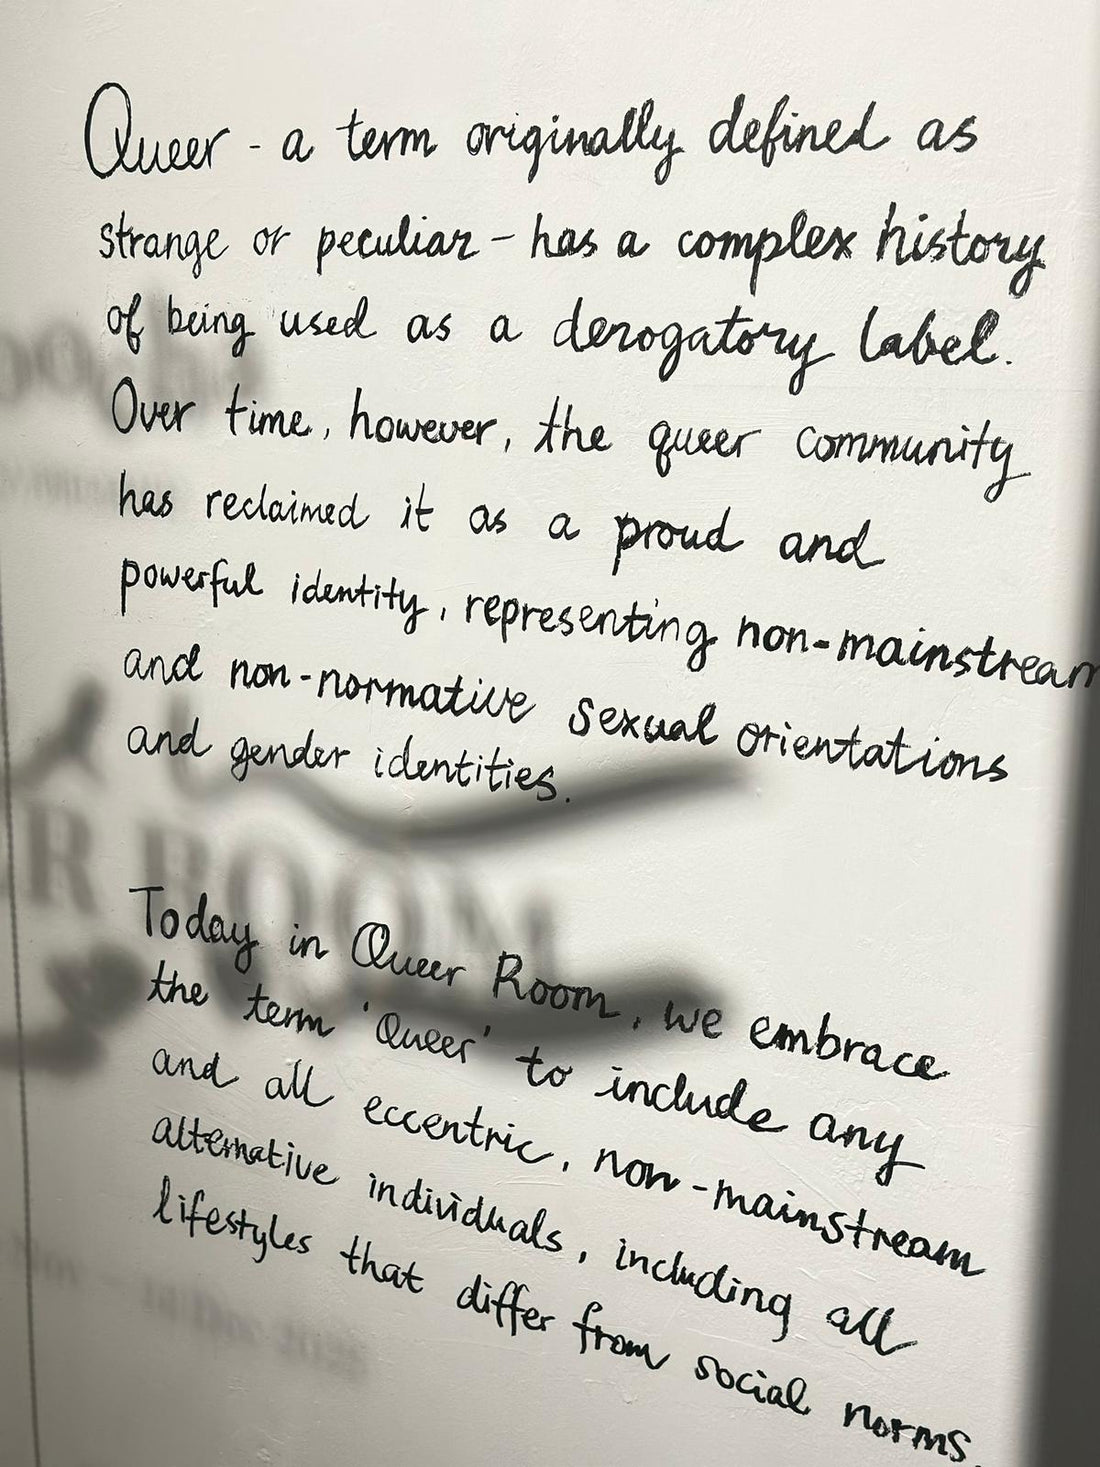 Queer - a term originally defined as
strange or peculiar - has a complex history
of being used as a derogatory label.
Over time, however, the queer community
has reclaimed it as a proud and
powerful identity, representing non-mainstream
and non-normative sexual orientations
and gender identities.
Today in Queer Room, we embrace
the term 'Queer' to include any
and all eccentric, non-mainstream
alternative individuals, including all
lifestyles that differ from social norms.
R ROOM